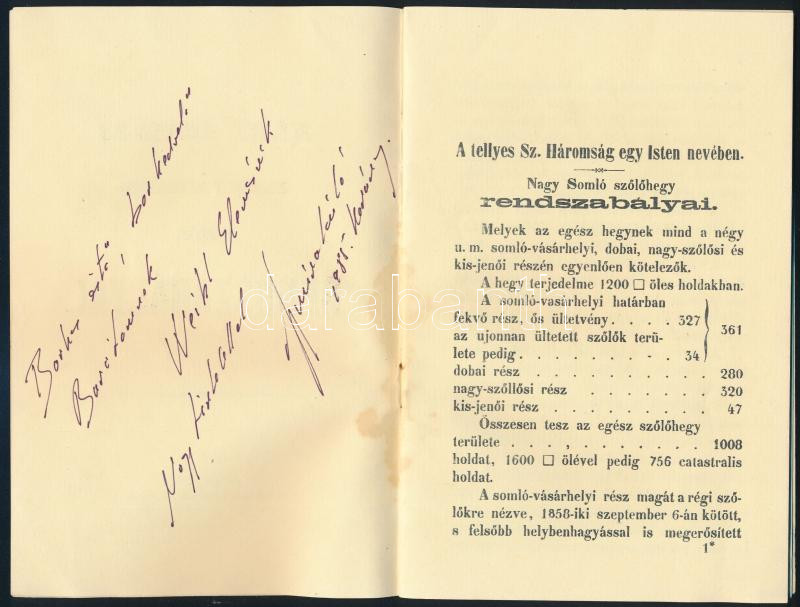 Borkóstoló
Barátomnak
Weibl Elemérnek
Nagy tisztelettel
1988.
A tellyes Sz. Háromság egy Isten nevében.
Nagy Somló szőlőhegy
rendszabályai.
Melyek az egész hegynek mind a négy
u. m. somló-vásárhelyi, dobai, nagy-szőlősi és
kis-jenői részén egyenlően kötelezők.
A hegy terjedelme 1200 □ öles holdakban.
A somló-vásárhelyi határban
fekvő rész, ős ültetvény . . . . 327
361
az ujonnan ültetett szőlők terü-
lete pedig . . . . . . . . . 34
dobai rész . . . . . . . . . . 280
nagy-szőllősi rész . . . . . . . 320
kis-jenői rész . . . . . . . . . 47
Összesen tesz az egész szőlőhegy
területe . . . , . . . . . . . 1008
holdat, 1600 □ ölével pedig 756 catastralis
holdat.
A somló-vásárhelyi rész magát a régi sző-
lőkre nézve, 1858-iki szeptember 6-án kötött,
s felsőbb helybenhagyással is megerősített
1*
darabanth